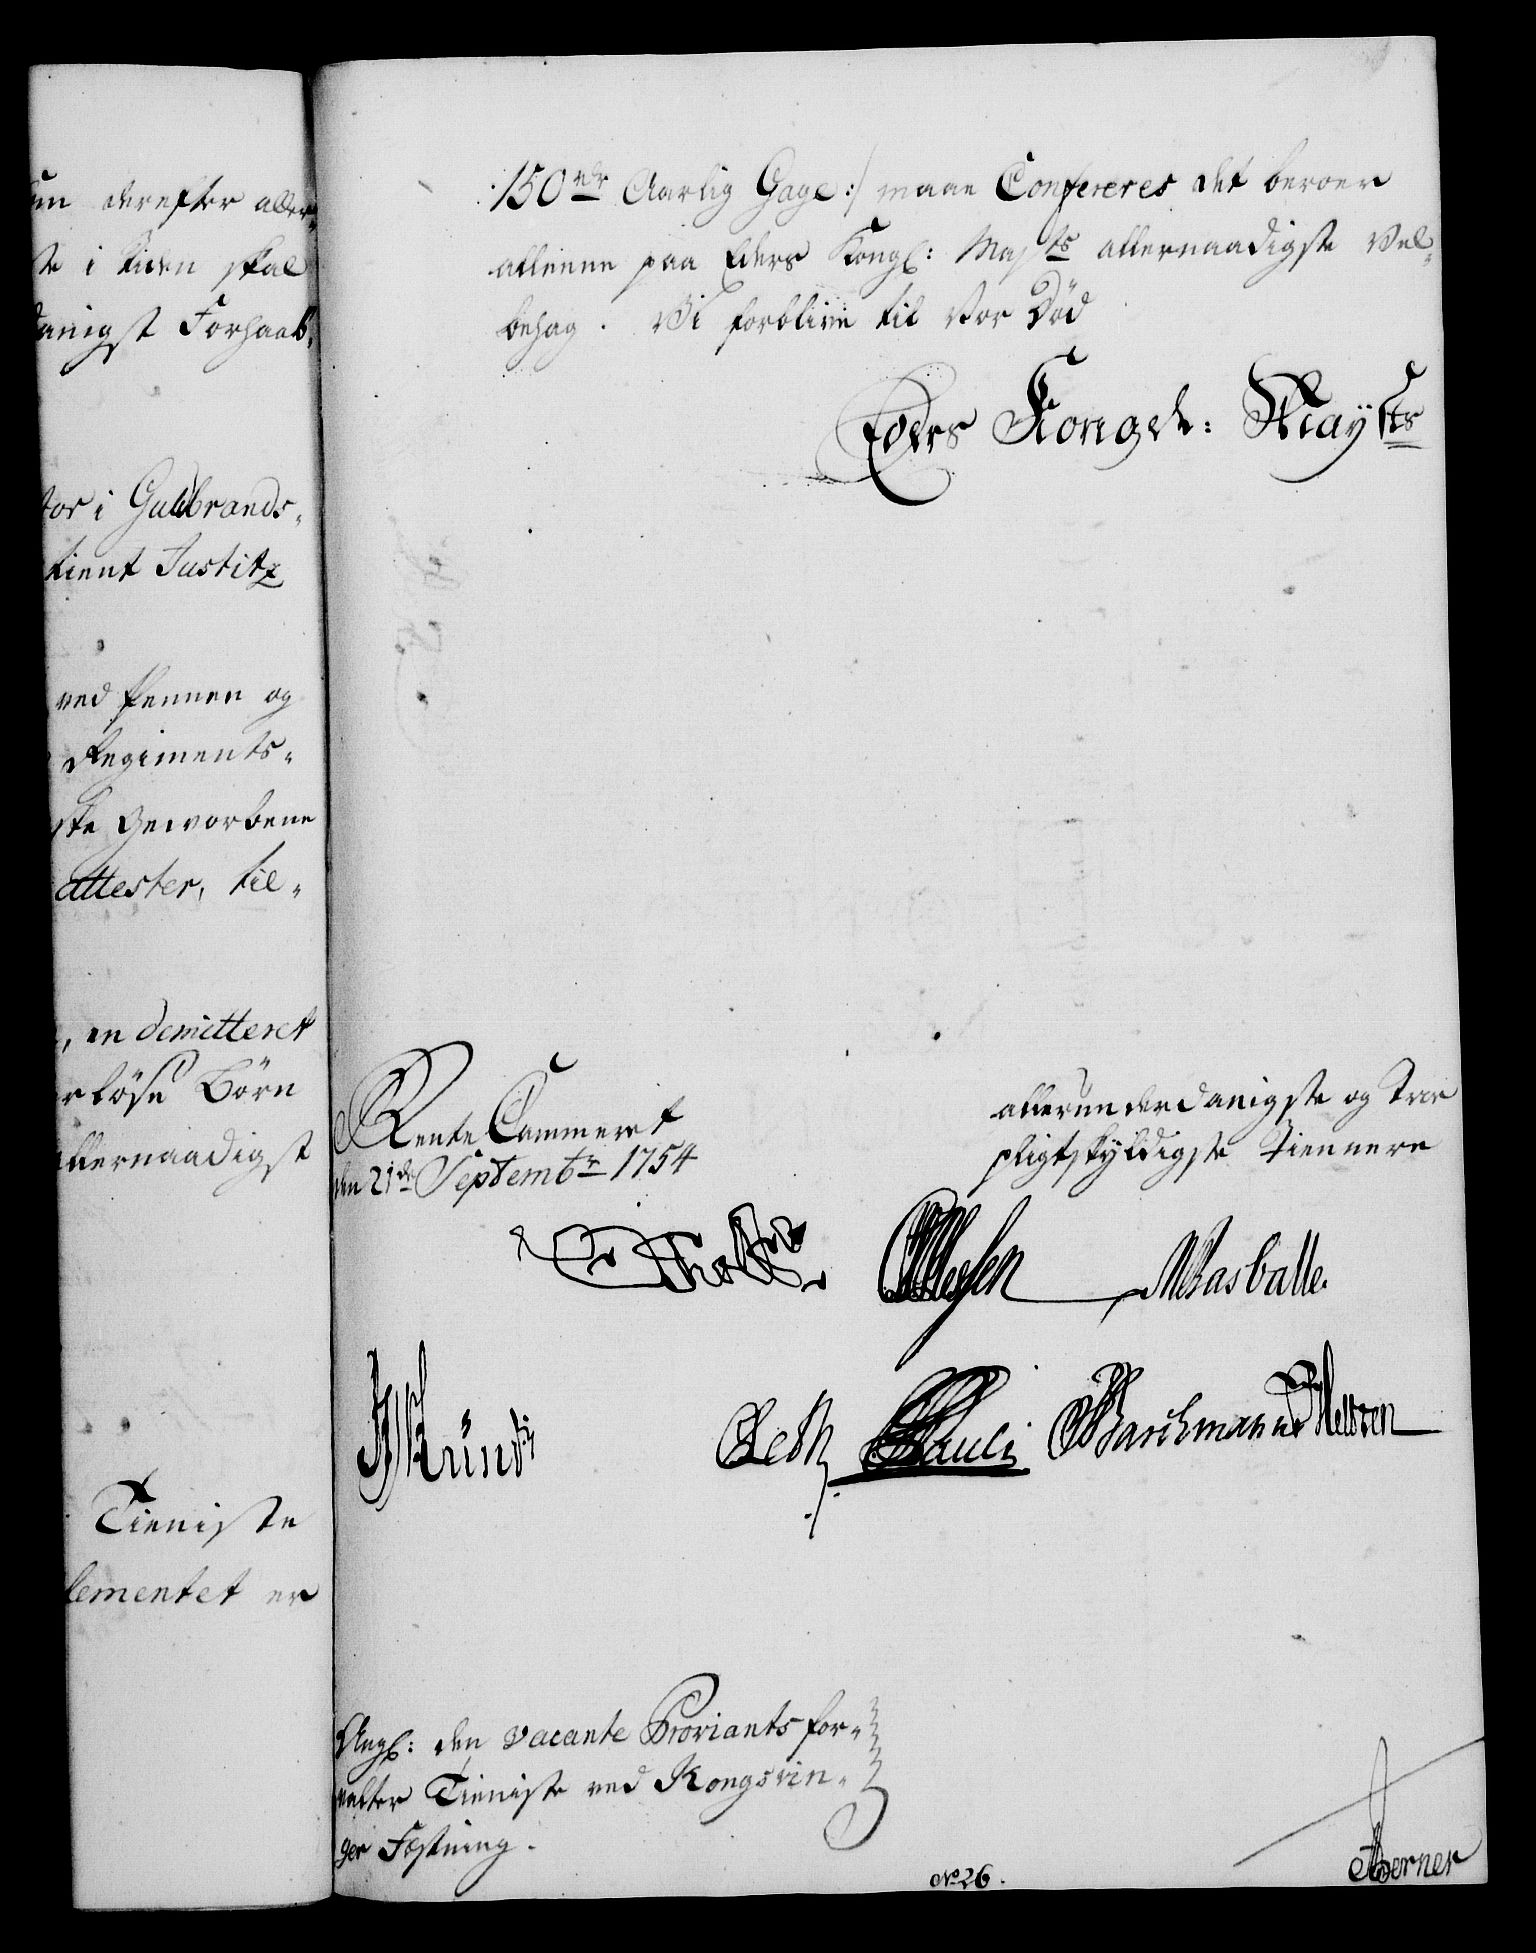 um derefter aller-
te i tiden skal
danigst Forhaab,
tor i Guldbrands-
tient Justitz
ved Pennen og
Regiments-
ske Geworbene
attester, til-
, en demitteret
rløse Børn
allernaadigst
Tieniste
lementet er
150 rdr Aarlig Gage :/ maae Confereres det beroer
alleene paa Eders Kongl: Majts allernaadigste Vel-
behag. Vi forblive til vor Død
Eders Kongel: Mayts
Rente Cammeret
den 21de Septembr 1754
allerunderdanigste og Troe
pligtskyldigste Tiennere
Holst
Rasballe.
Leth Pauli Barchmann Neltzen
Angl: den vacante Proviantsfor-
valter Tieniste ved Kongsvin-
ger Fæstning.
No 26.
Berner